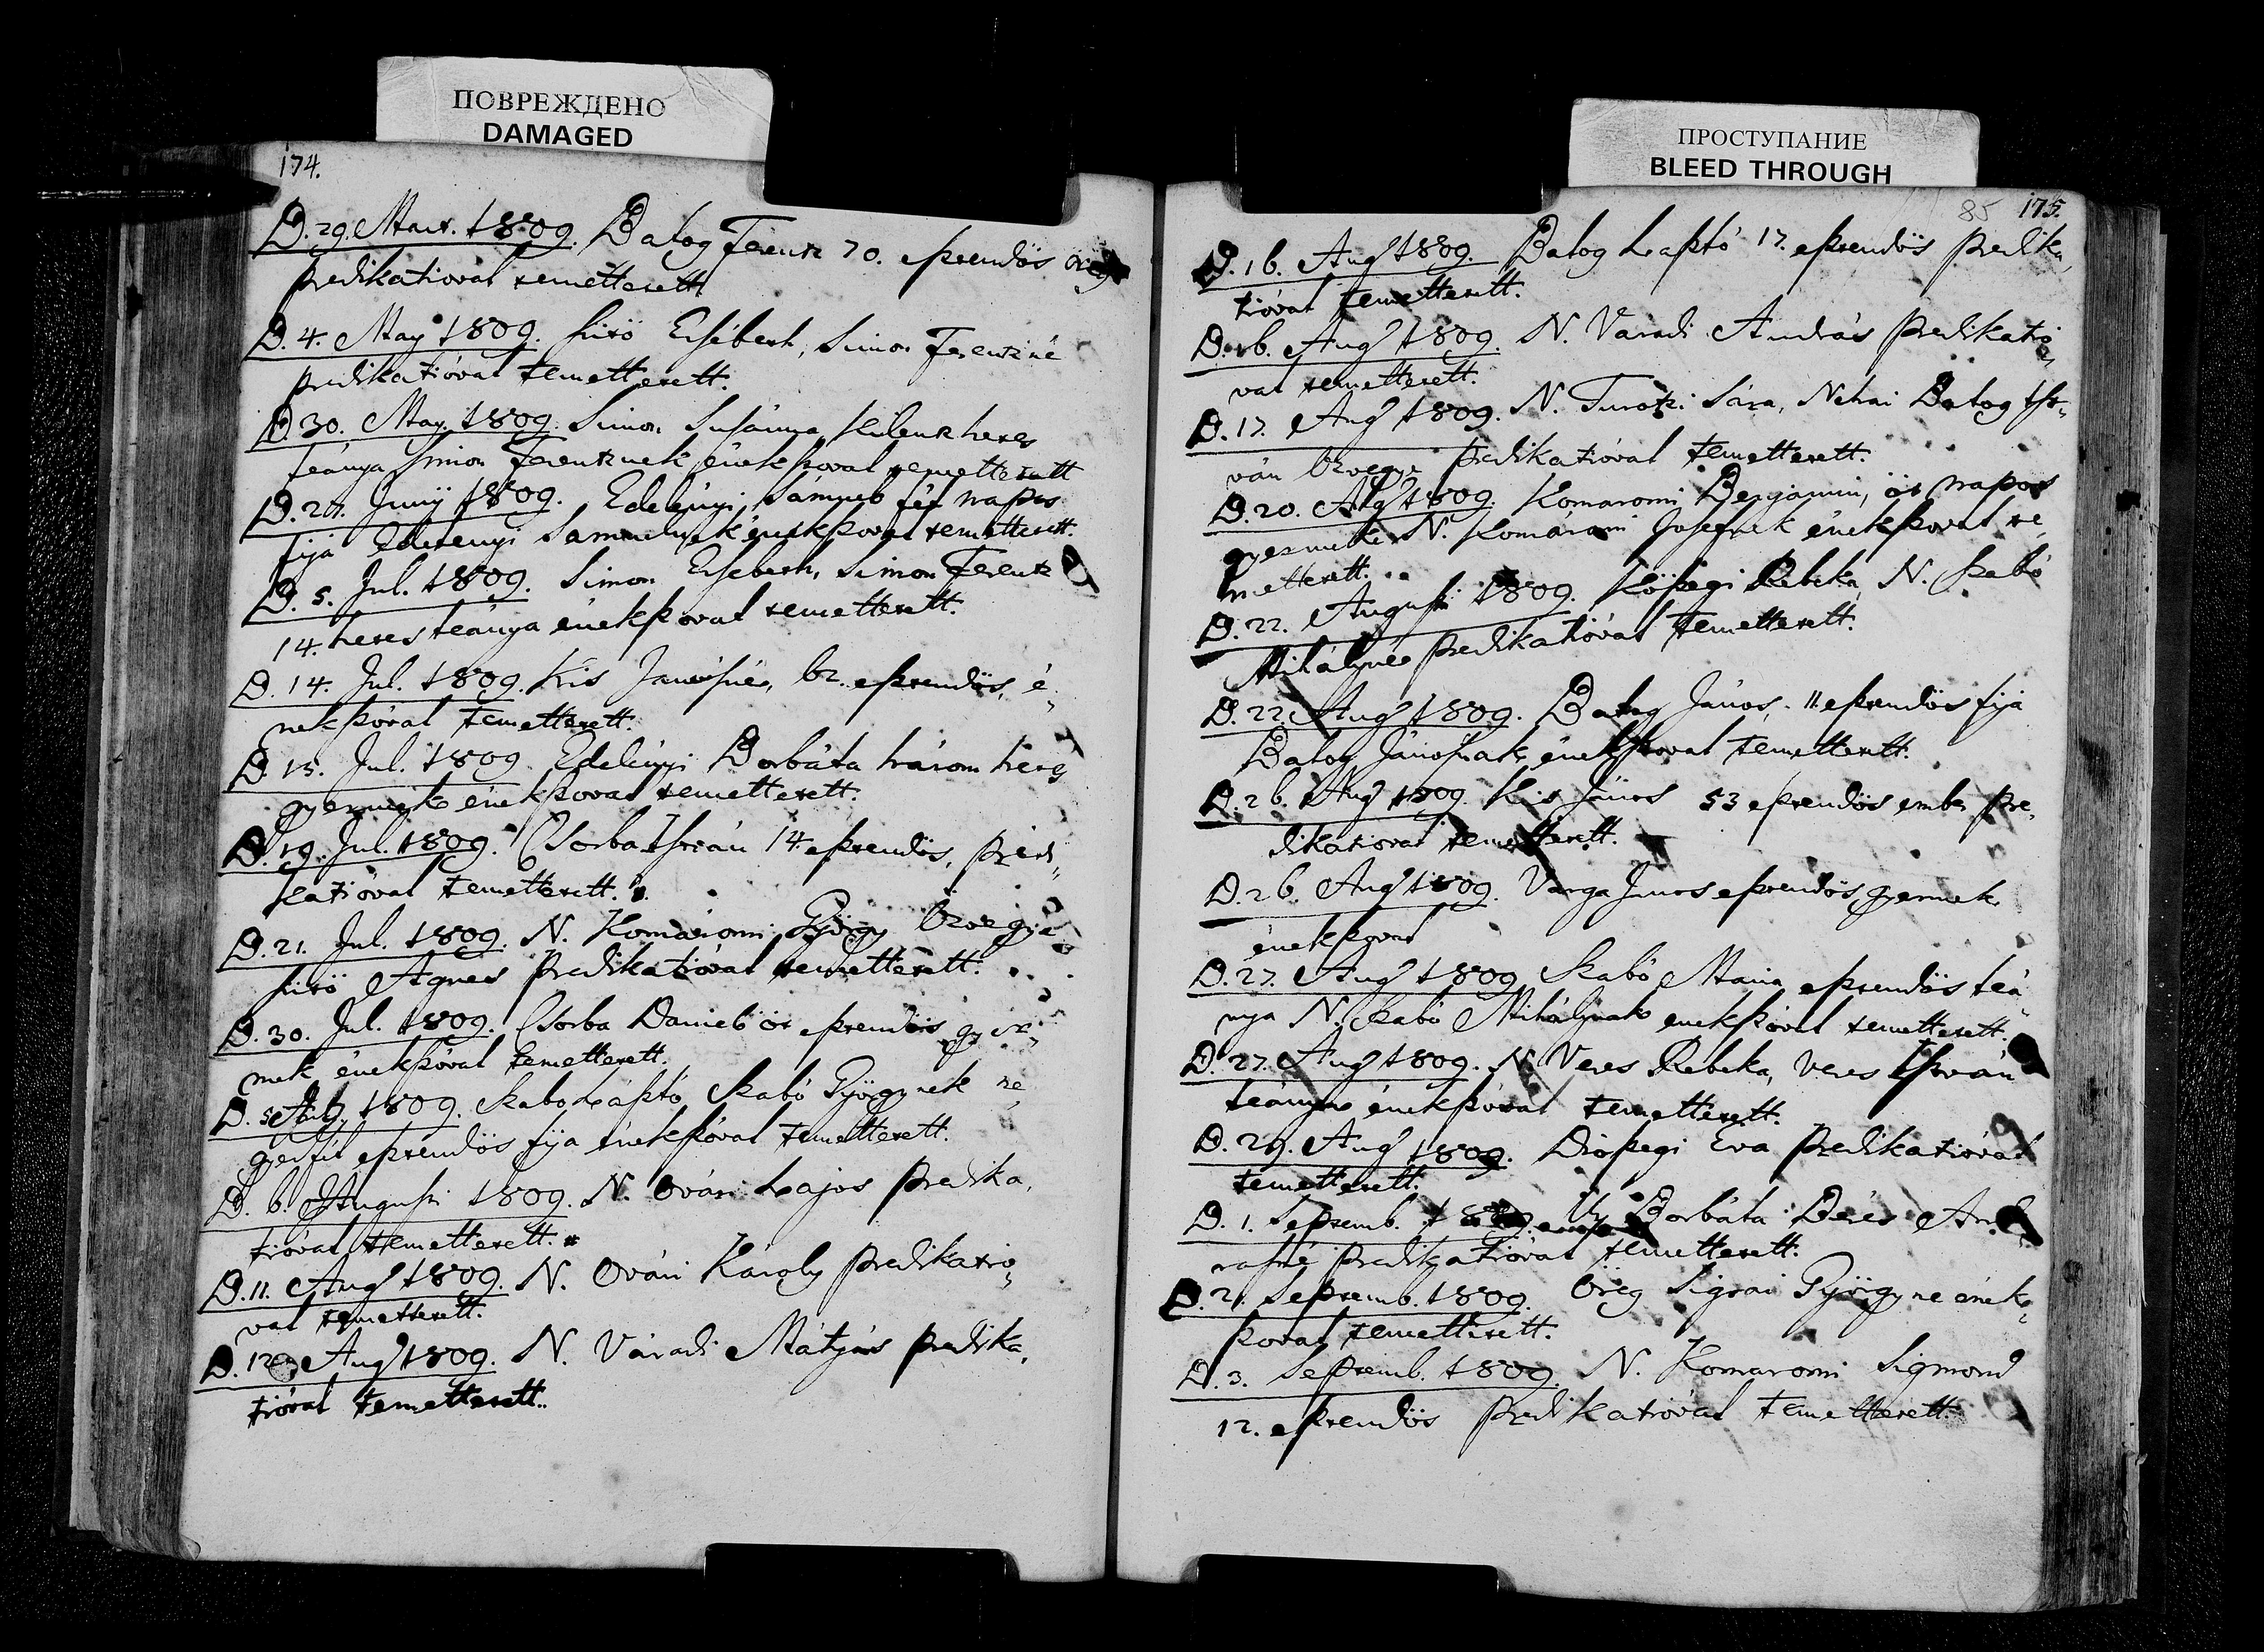 ПОВРЕЖДЕНО
DAMAGED
174.
D. 29. Mart. 1809. Balog Ferentz 70. esztendős öreg
predikatioval temettetett.
D. 4. May 1809. Szűtö Ersébeth, Simon Ferentzné
predikatióval temettetett.
D. 30. May. 1809. Simon Susánna kilentz hetes
leánya Simon Ferentznek énekszoval temettetett
D. 21. Junij 1809. Edelényi Sámuel fél napos
fija Edelényi Samuelnek énekszoval temettetett.
D. 5. Jul. 1809. Simon Ersebeth, Simon Ferentz
14. hetes leánya énekszoval temettetett.
D. 14. Jul. 1809. Kis Jánosné, 62. esztendős, é„
nekszóval temettetett.
D. 15. Jul. 1809. Edelényi Borbála három hetes
gyermek énekszoval temettetett.
D. 19. Jul. 1809. Csorba István 14 esztendős, predi„
katióval temettetett.
D. 21. Jul. 1809. N. Komáromi György özvegye
Szűtö Agnes predikatióval temettetett.
D. 30. Jul. 1809. Csorba Daniel öt esztendős gyer„
mek énekszóval temettetett.
D. 1809. Szabo László Szabó Györgynek ne„
gyedfél esztendös fija énekszóval temettetett.
D. 6. Augusti 1809. N. Ovári Lajos predika„
tióval temettetett.
D. 11. Aug 1809. N. Ovári Károly predikatio„
val temettetett.
D. 12. Aug 1809. N. Váradi Mátyás predika„
tióval temettetett.
ПРОСТУПАНИЕ
BLEED THROUGH
85 175.
D. 16. Aug 1809. Balog László 17. esztendős predika„
tióval temettetett.
D. 16. Aug 1809. N. Varadi András predikatio„
val temettetett.
D. 17. Aug 1809. N. Turotzi Sára, Nehai Balog Ist„
ván özvegye predikatióval temettetett.
D. 20. Aug 1809. Komaromi Benjamin, öt napos
gyermeke N. Komáromi Josefnek énekszoval te„
mettetett.
D. 22. Augusti 1809. Kőszegi Rebeka, N. Szabó
Mihályné predikatióval temettetett.
D. 22. Aug 1809. Balog János, 11. esztendős fija
Balog Jánosnak, énekszoval temettetett.
D. 26. Aug 1809. Kis János 53 esztendős ember pre„
dikatioval temettetett.
D. 26. Aug 1809. Varga János esztendös gyermek
énekszoval
D. 27. Aug 1809. Szabó Maria esztendös leá„
nya N. Szabó Mihálynak enekszóval temettetett.
D. 27. Aug 1809. N. Veres Rebeka, Veres István
leánya énekszóval temettetett.
D. 29. Aug 1809. Diószegi Eva predikatióval
temettetett.
D. 1. Septemb. Borbála Béres And„
rásné predikatióval temettetett.
D. 2. Septemb. 1809. Öreg Sigrai Györgyne ének„
szoval temettetett.
D. 3. Septemb. 1809. N. Komaromi Sigmond
12. esztendös predikatióval temettetett.